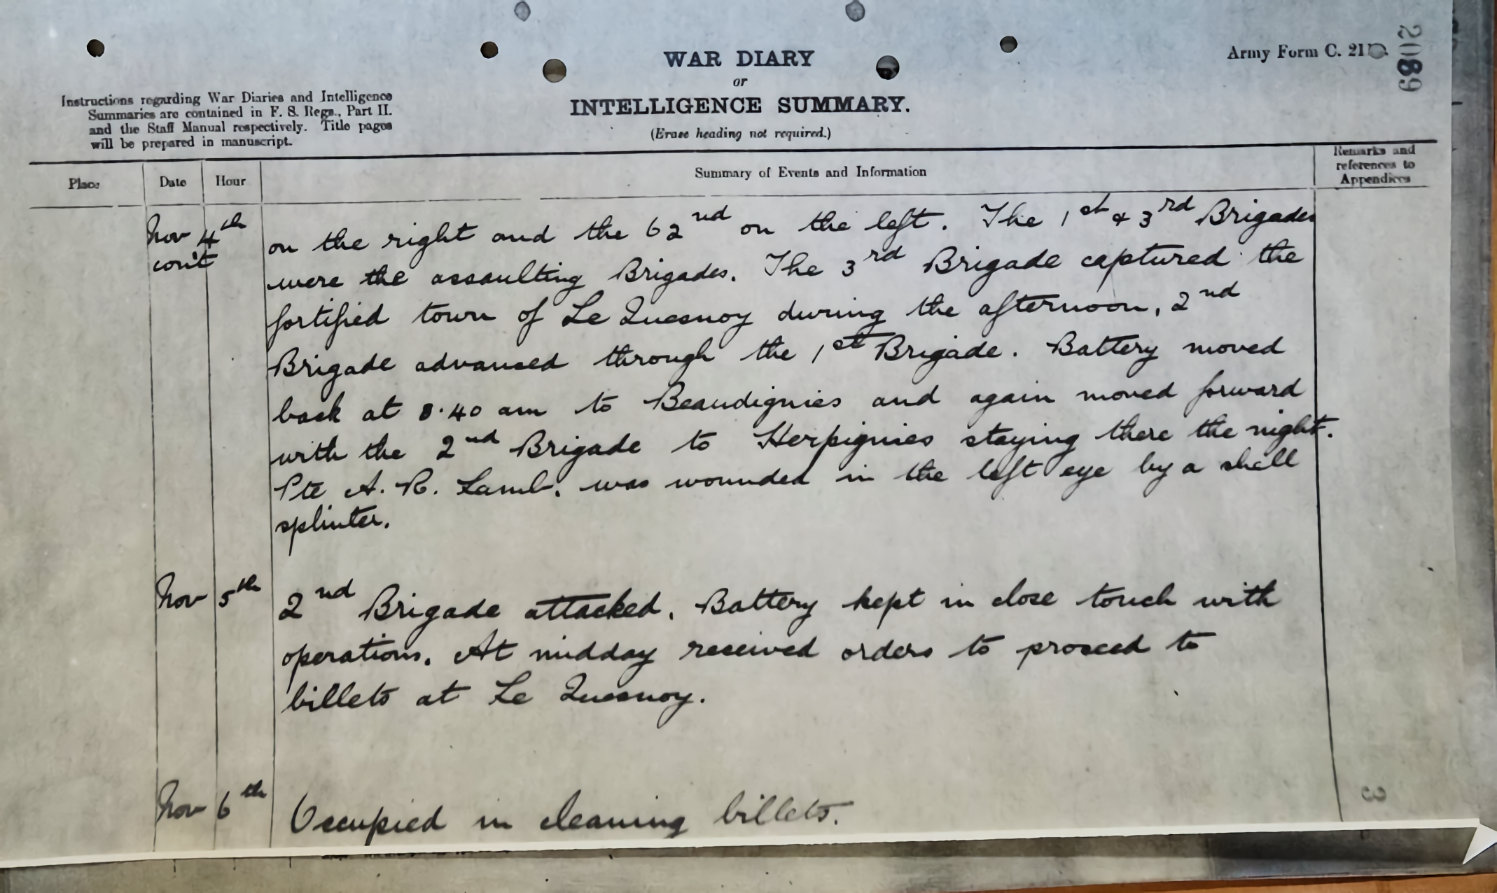 WAR DIARY
or
INTELLIGENCE SUMMARY.
(Erase heading not required.)
Army Form C. 211
2089
Instructions regarding War Diaries and Intelligence
Summaries are contained in F. S. Regs., Part II.
and the Staff Manual respectively. Title pages
will be prepared in manuscript.
Place Date Hour Summary of Events and Information Remarks and
references to
Appendices
Nov 4th on the right and the 62nd on the left. The 1st & 3rd Brigades
con't were the assaulting Brigades. The 3rd Brigade captured the
fortified town of Le Quesnoy during the afternoon. 2nd
Brigade advanced through the 1st Brigade. Battery moved
back at 8.40 am to Beaudignies and again moved forward
with the 2nd Brigade to Herpignies staying there the night.
Pte A. R. Lamb. was wounded in the left eye by a shell
splinter.
Nov 5th 2nd Brigade attacked. Battery kept in close touch with
operations. At midday received orders to proceed to
billets at Le Quesnoy.
Nov 6th Occupied in cleaning billets.
3